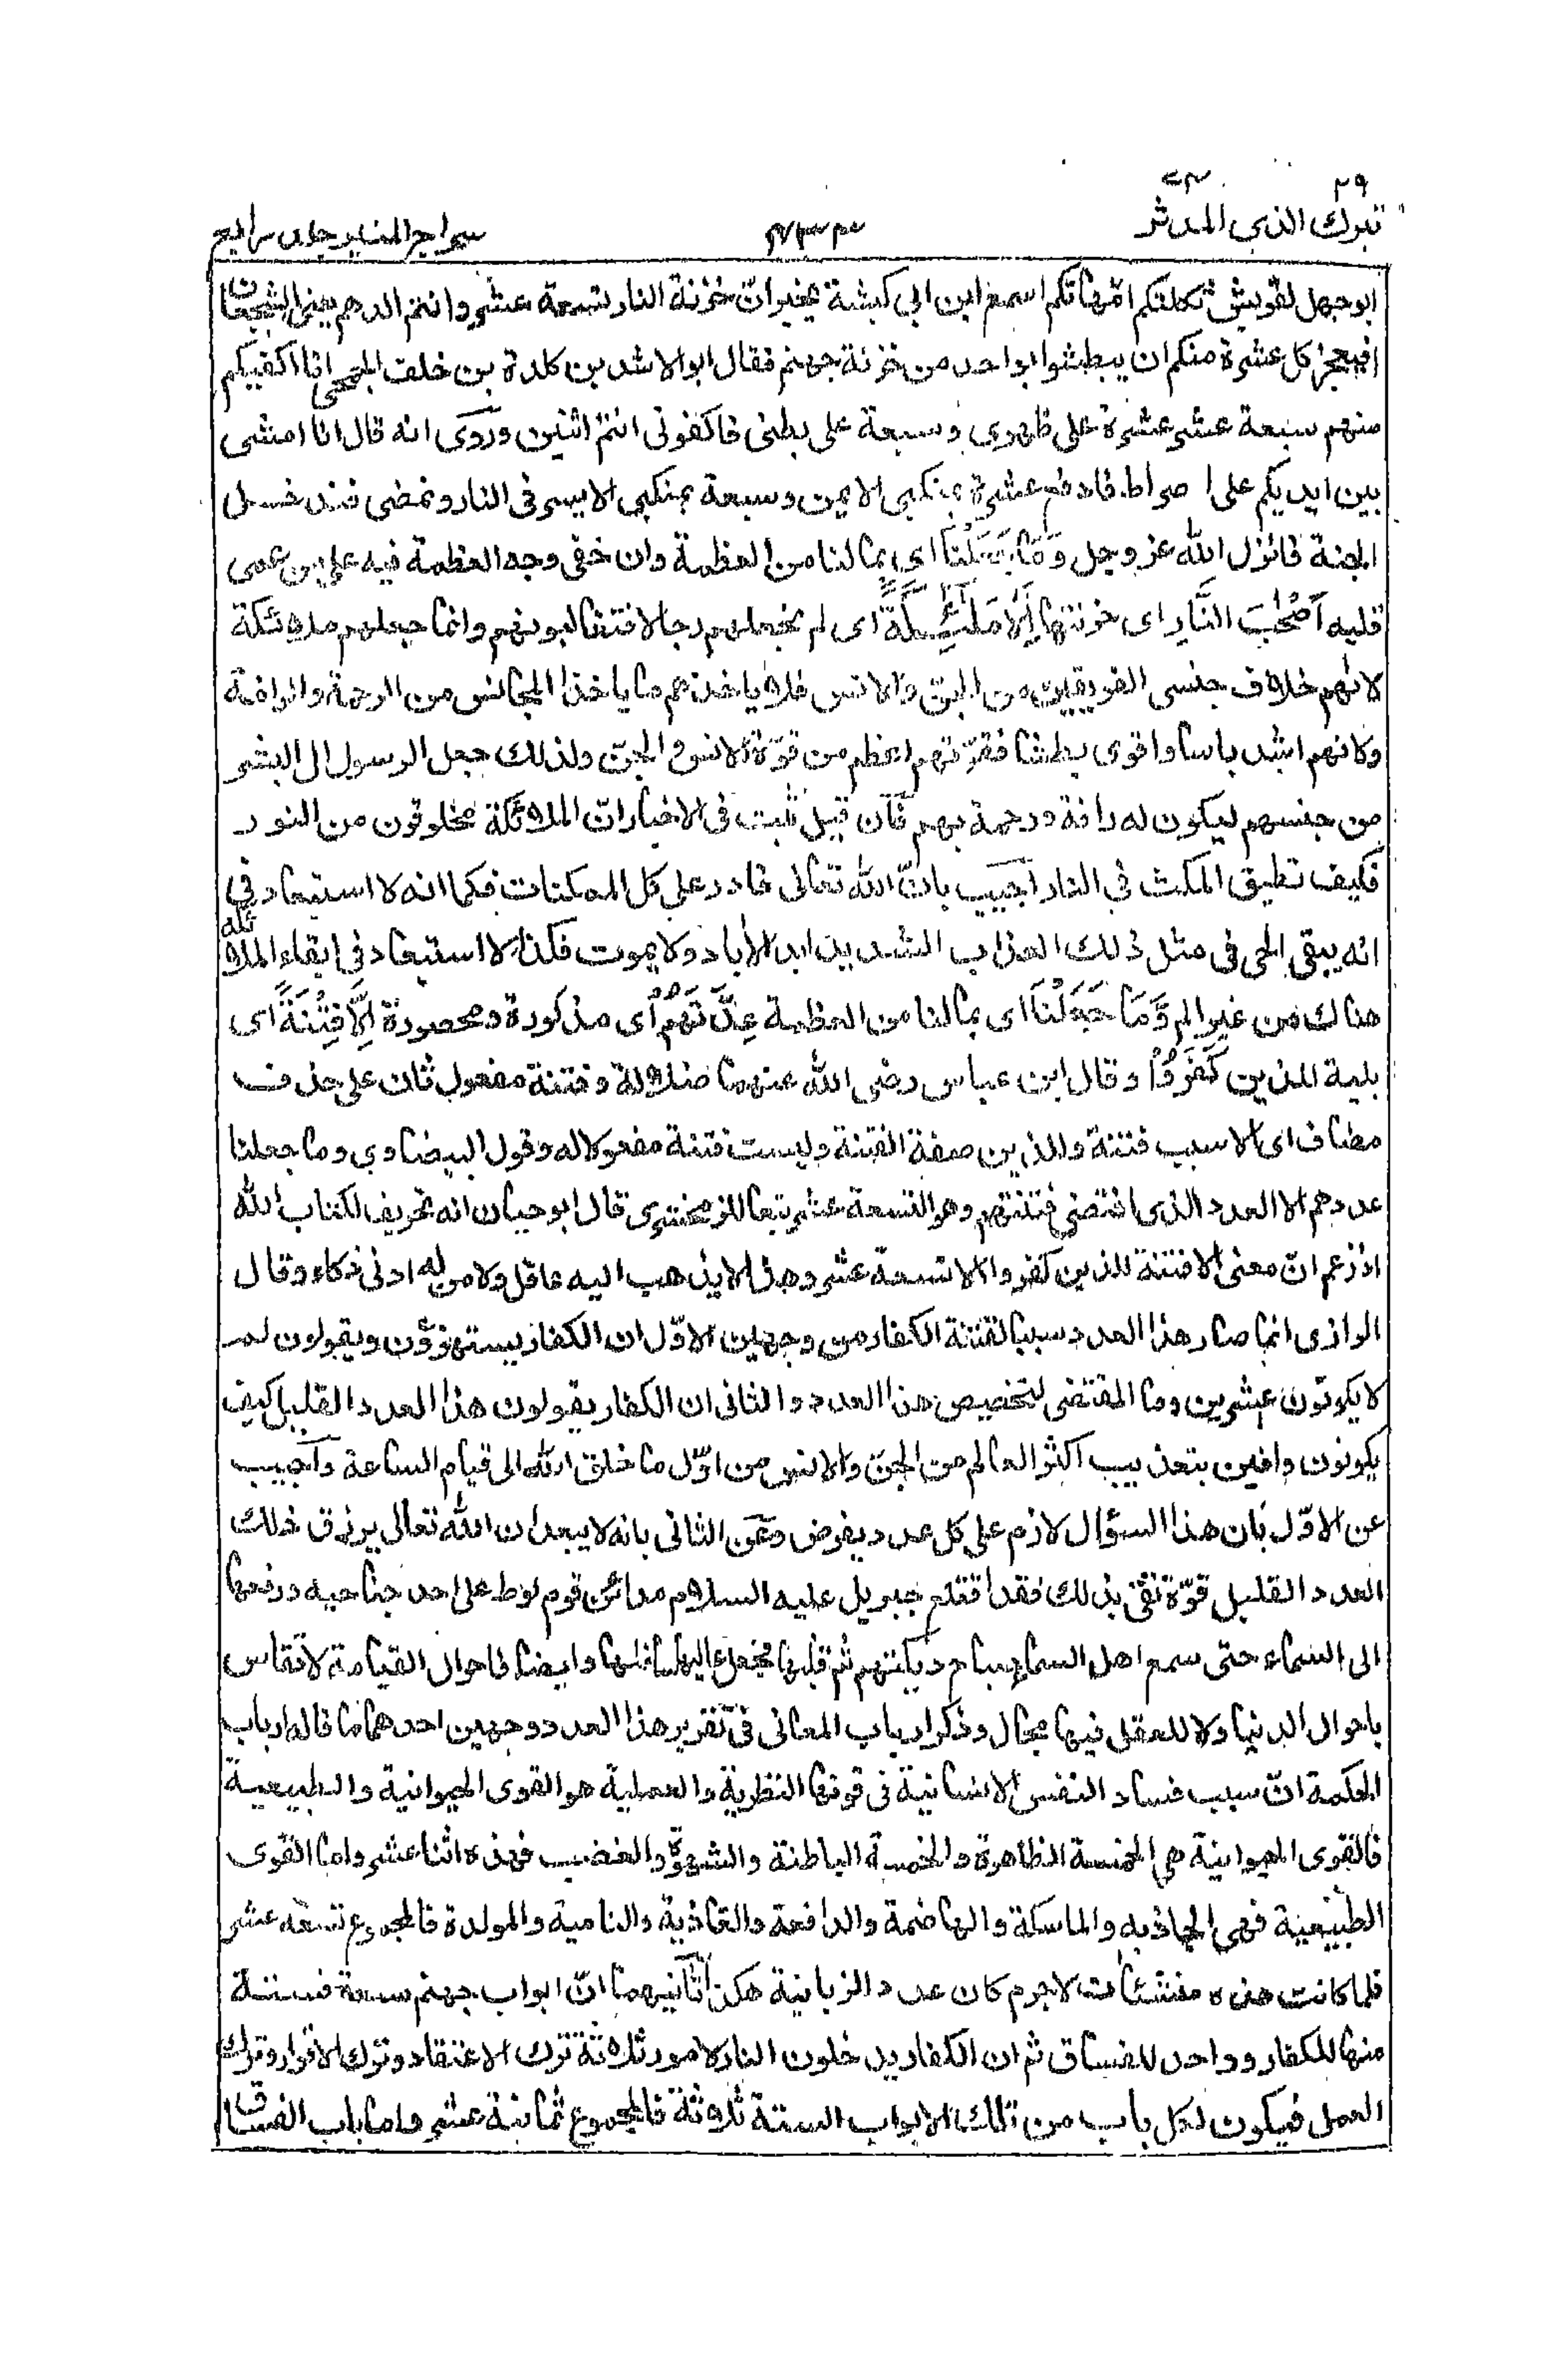 ٢٩
٧٤
تبرك الذى المدثر
٤٣٣
سراج المنير جلد رابع
ابوجهل لقريش ثكلتكم امّهاتكم اسمع ابن ابي كبشة يخبر انّ خزنة النار تسعة عشر وانتم الدهم يعنى الشجعان
افيعجز كل عشرة منكم ان يبطشوا بواحد من خزنة جهنم فقال ابو الاشد بن كلدة بن خلف الجمحى انا اكفيكم
منهم سبعة عشر عشرة على ظهرى وسبعة على بطنى فاكفونى انتم اثنين وروى انه قال انا امشى
بين ايديكم على ا صراط فادفع عشرة بمنكبى الايمن وسبعة بمنكبى الايسر فى النار ونمضى فندخل
الجنة فانزل الله عز وجل وَمَا جَعَلْنَا اى بما لنا من العظمة وان خفى وجه العظمة فيه على من عمى
قلبه اَصْحٰبَ النَّارِ اى خزنتها اِلَّا مَلٰٓئِكَةً اى لم نجعلهم رجالا فتغالبونهم وانما جعلهم ملائكة
لانهم خلاف جنسى الفريقين من الجن والانس فلا ياخذهم ما ياخذ المجانس من الرحمة والرافة
ولانهم اشد باسا واقوى بطشا فقوّتهم اعظم من قوّة الانس والجنّ ولذلك جعل الرسول ال البشر
من جنسهم ليكون له رافة ورحمة بهم فان قيل ثبت فى الاخبار انّ الملائكة مخلوقون من النور
فكيف تطيق المكث فى النار اجيب بانّ الله تعالى قادر على كل الممكنات فكما انه لا استبعاد فى
انه يبقى الحى فى مثل ذلك العذاب الشديد ابد الأباد ولا يموت فكذا لا استبعاد فى ابقاء الملائكة
هناك من غير الم وَّمَا جَعَلْنَا اى بما لنا من العظمة عِدَّتَهُمْ اى مذكورة ومحصورة اِلَّا فِتْنَةً اى
بلية للذين كَفَرُوْا وقال ابن عباس رضى الله عنهما ضلالة وفتنة مفعول ثان على حذف
مضاف اى الا سبب فتنة وللذين صفة الفتنة وليست فتنة مفعولا له وقول البيضاوى وما جعلنا
عددهم الا العدد الذى اقتضى فتنتهم وهو التسعة عشر تبعا للزمخشرى قال ابوحيان انه تحريف لكتاب الله
اذ زعم انّ معنى الا فتنة للذين كفروا الا تسعة عشر وهذا لا يذهب اليه عاقل ولا من له ادنى ذكاء وقال
الرازى انما صار هذا العدد سببا لفتنة الكفار من وجهين الاوّل ان الكفار يستهزؤن ويقولون لم
لا يكونون عشرين وما المقتضى لتخصيص هذا العدد والثانى ان الكفار يقولون هذا العدد القليل كيف
يكونون وافين بتعذيب اكثر العالم من الجن والانس من اوّل ما خلق الله الى قيام الساعة واجيب
عن الاوّل بان هذا السؤال لازم على كل عدد يفرض وعن الثانى بانه لا يبعد ان الله تعالى يرزق ذلك
العدد القليل قوّة تفى بذلك فقد اقتلع جبريل عليه السلام مدائن قوم لوط على احد جناحيه ورفعها
الى السماء حتى سمع اهل السماء صياح ديكتهم ثم قلبها فجعل عاليها سافلها وايضا فاحوال القيامة لا تقاس
باحوال الدنيا ولا للعقل فيها مجال وذكر ارباب المعانى فى تقرير هذا العدد وجهين احدهما ما قاله ارباب
الحكمة انّ سبب فساد النفس الانسانية فى قوتها النظرية والعملية هو القوى الحيوانية والطبيعية
فالقوى الحيوانية هى الخمسة الظاهرة والخمسة الباطنة والشهوة والغضب فهذه اثنا عشر واما القوى
الطبيعية فهى الجاذبه والماسكة والهاضمة والدافعة والغاذية والنامية والمولدة فالمجموع تسعه عشر
فلما كانت هذه منشئات لاجرم كان عدد الزبانية هكذا ثانيهما انّ ابواب جهنم سبعة فستة
منها للكفار وواحد للفساق ثم ان الكفار يدخلون النار لامور ثلاثة ترك الاعتقاد وترك الاقرار وترك
العمل فيكون لكل باب من تلك الابواب الستة ثلاثة فالمجموع ثمانية عشر واما باب الفساق